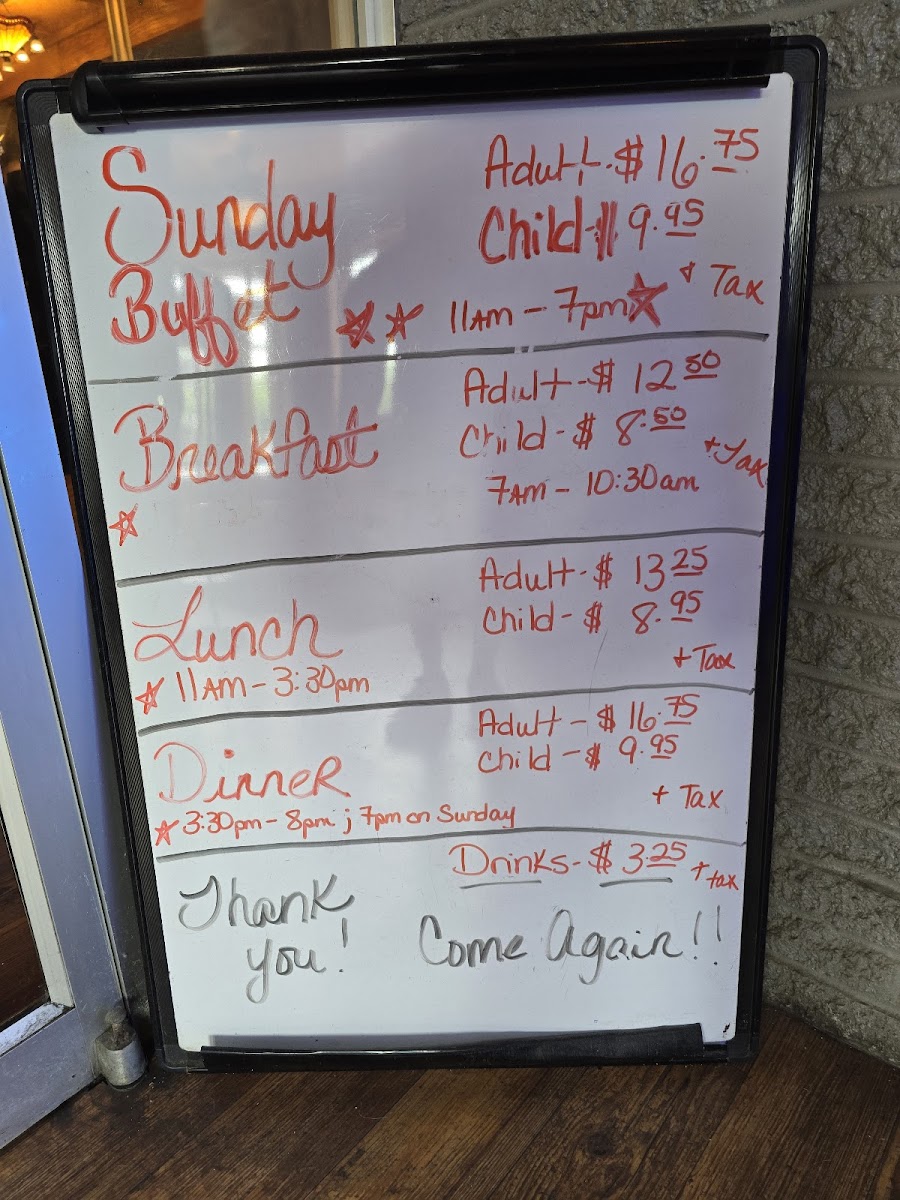 Sunday
Buffet
Adult - $16.75
Child - 9.95
+ Tax
11AM - 7pm
Breakfast
Adult - $ 12 50
Child - $ 8.50
+ Tax
7AM - 10:30am
Lunch
11AM - 3:30pm
Adult - $ 13 25
Child - $ 8.95
+ Tax
Dinner
3:30pm - 8pm ; 7pm on Sunday
Adult - $ 16.75
Child - $ 9.95
+ Tax
Drinks - $ 3.25 + tax
Thank
you!
Come Again!!